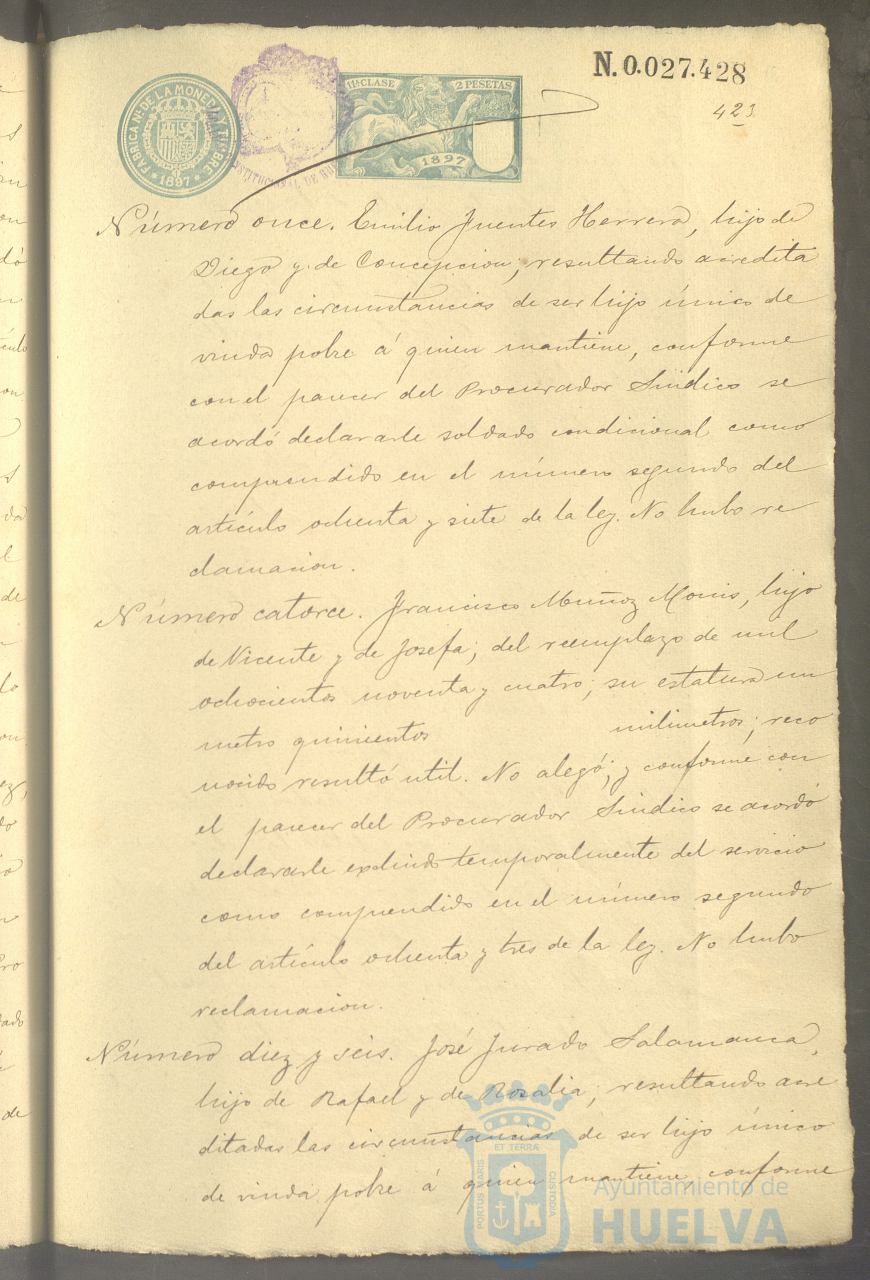 N.0.027.428
423
FABRICA Nal DE LA MONEDA Y TIMBRE
1897
11ª CLASE 2 PESETAS
1897
Número once. Emilio Fuentes Herrera, hijo de
Diego y de Concepcion; resultando acredita
das las circumstancias de ser hijo único de
viuda pobre á quien mantiene, conforme
con el parecer del Procurador Síndico se
acordó declararle soldado condicional como
comprendido en el número segundo del
artículo ochenta y siete de la ley. No hubo re
clamacion.
Número catorce. Francisco Muñoz Monis, hijo
de Vicente y de Josefa; del reemplazo de mil
ochocientos noventa y cuatro; su estatura un
metro quinientos milimetros; reco
nocido resultó util. No alegó; y conforme con
el parecer del Procurador Síndico se acordó
declararle excluido temporalmente del servicio
como comprendido en el número segundo
del artículo ochenta y tres de la ley. No hubo
reclamacion.
Número diez y seis. José Jurado Salamanca,
hijo de Rafael y de Rosalia; resultando acre
ditadas las circumstancias de ser hijo único
de viuda pobre á quien mantiene, conforme
PORTUS MARIS ET TERRÆ CUSTODIA
Ayuntamiento de
HUELVA